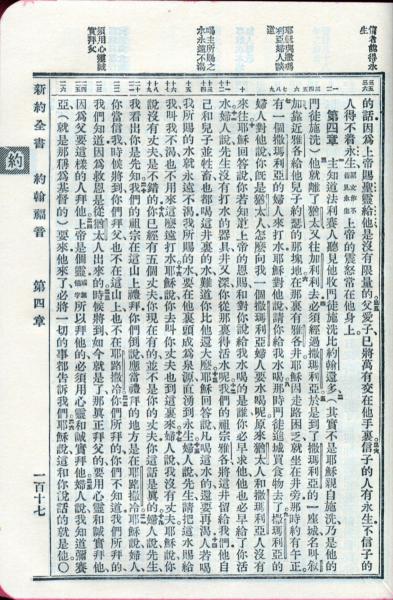 信者能得永生
耶穌與撒瑪利亞婦人談道
喝主所賜之水永遠不渴
須用心靈誠實拜父
的話因為上帝賜聖靈給他是沒有限量的父愛子已將萬有交在他手裏信子的人有永生不信子的
人得不着永生上帝的震怒常在他身上
第四章 主知道法利賽人聽見他收門徒施洗比約翰還多(其實不是耶穌親自施洗乃是他的
門徒施洗)他就離了猶太又往加利利去必須經過撒瑪利亞於是到了撒瑪利亞的一座城名叫敘
加靠近雅各給他兒子約瑟的那塊地在那裏有雅各井耶穌因走路困乏就坐在井旁那時約有午正
有一個撒瑪利亞的婦人來打水耶穌對他說請你給我水喝那時門徒進城買食物去了撒瑪利亞的
婦人對他說你旣是猶太人怎麼向我一個撒瑪利亞婦人要水喝呢原來猶太人和撒瑪利亞人沒有
來往耶穌回答說你若知道上帝的恩賜和對你說給我水喝的是誰你必早求他他也必早給了你活
水婦人說先生沒有打水的器具井又深你從那裏得活水呢我們的祖宗雅各將這井留給我們他自
己和兒子並牲畜也都喝這井裏的水難道你比他還大麼耶穌回答說凡喝這水的還要再渴人若喝
我所賜的水就永遠不渴我所賜的水要在他裏頭成為泉源直湧到永生婦人說先生請把這水賜給
我叫我不渴也不用來這麼遠打水耶穌說你去叫你丈夫也到這裏來婦人說我沒有丈夫耶穌說你
說沒有丈夫是不錯的你已經有五個丈夫你現在有的並不是你的丈夫你這話是真的婦人說先生
我看出你是先知我們的祖宗在這山上禮拜你們倒說應當禮拜的地方是在耶路撒冷耶穌說婦人
你當信我時候將到你們拜父也不在這山上也不在耶路撒冷你們所拜的你們不知道我們所拜的
我們知道因為救恩是從猶太人出來的時候將到如今就是了那真正拜父的要用心靈和誠實拜他
因為父要這樣的人拜他上帝是個靈所以拜他的必須用心靈和誠實拜他婦人說我知道彌賽
亞(就是那稱為基督的)要來他來了必將一切的事都告訴我們耶穌說這和你說話的就是他○
新約全書 約翰福音 第四章 一百十七
約